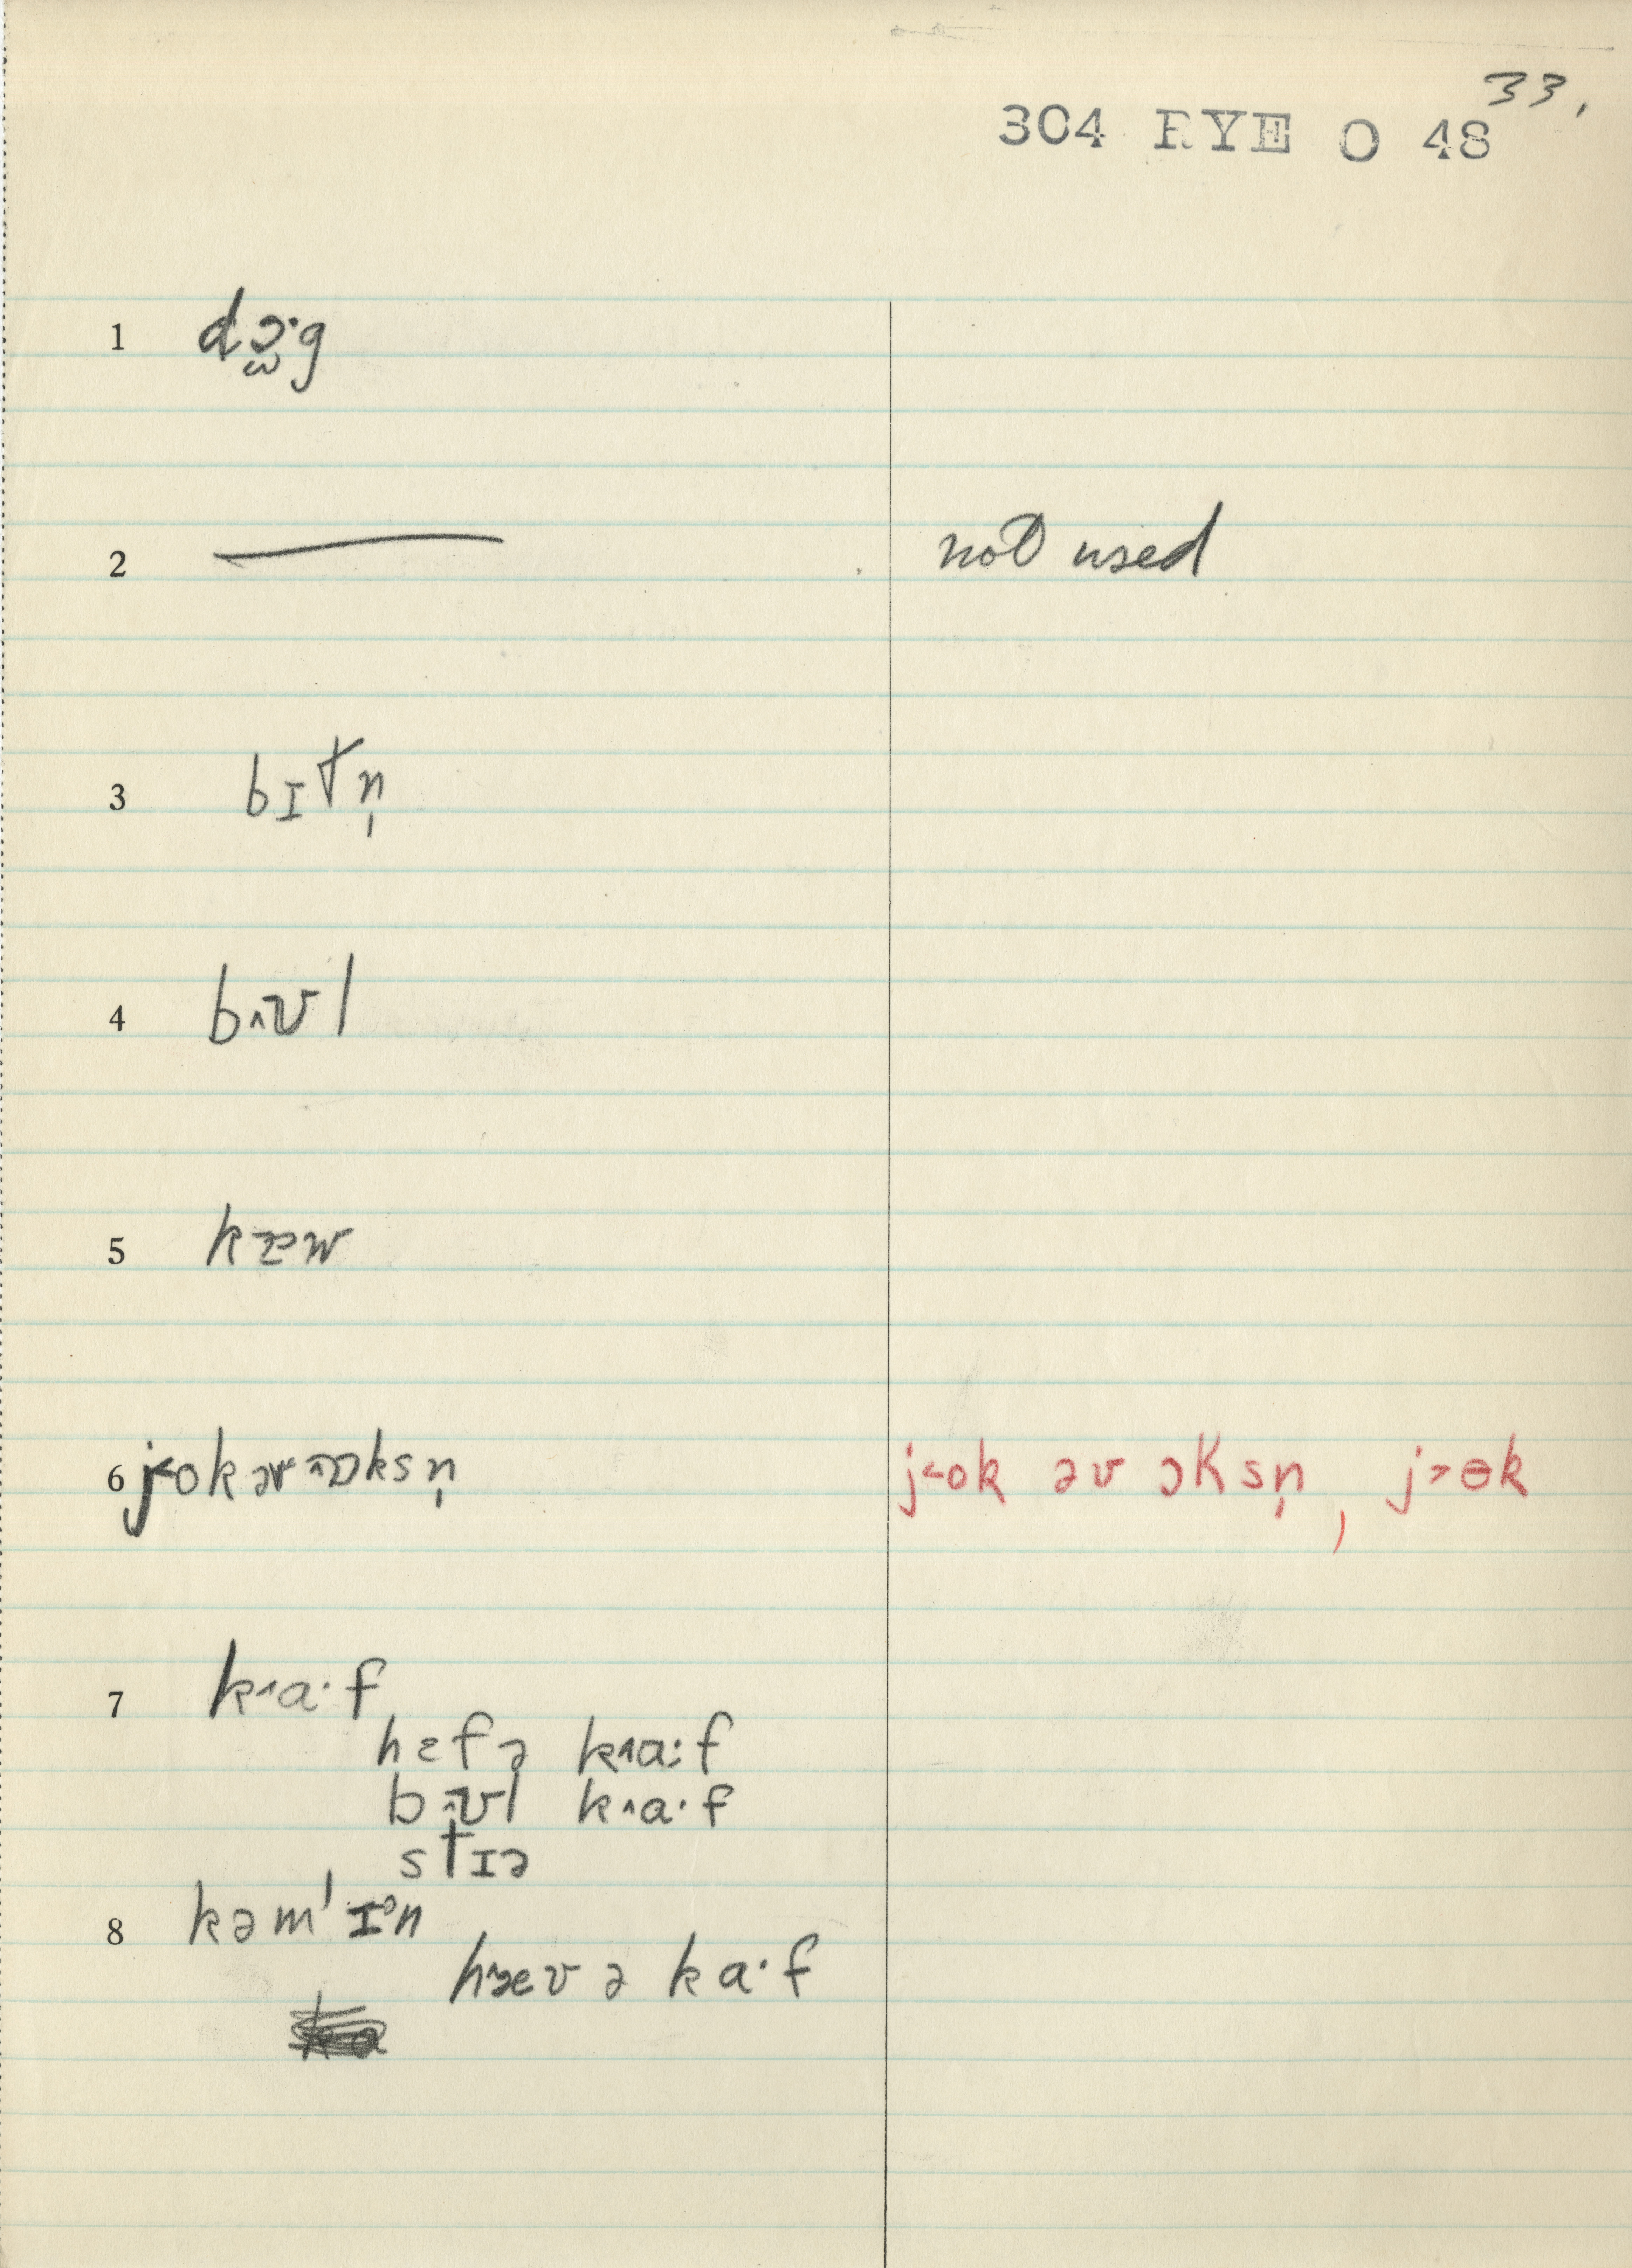 33.
304 RYE O 48
1 dɔ̫·g
2 — not used
3 bɪtn̩
4 b˄ʊl
5 kæw
6 j˂ok əv ɒksn̩ j˂ok əv ɔksn̩, j˃ɵk
7 k˄a·f
hɛfə k˄a:f
b˄ʊl k˄a·f
stɪə
8 kəm'ɪᵊn
hæv ə ka·f